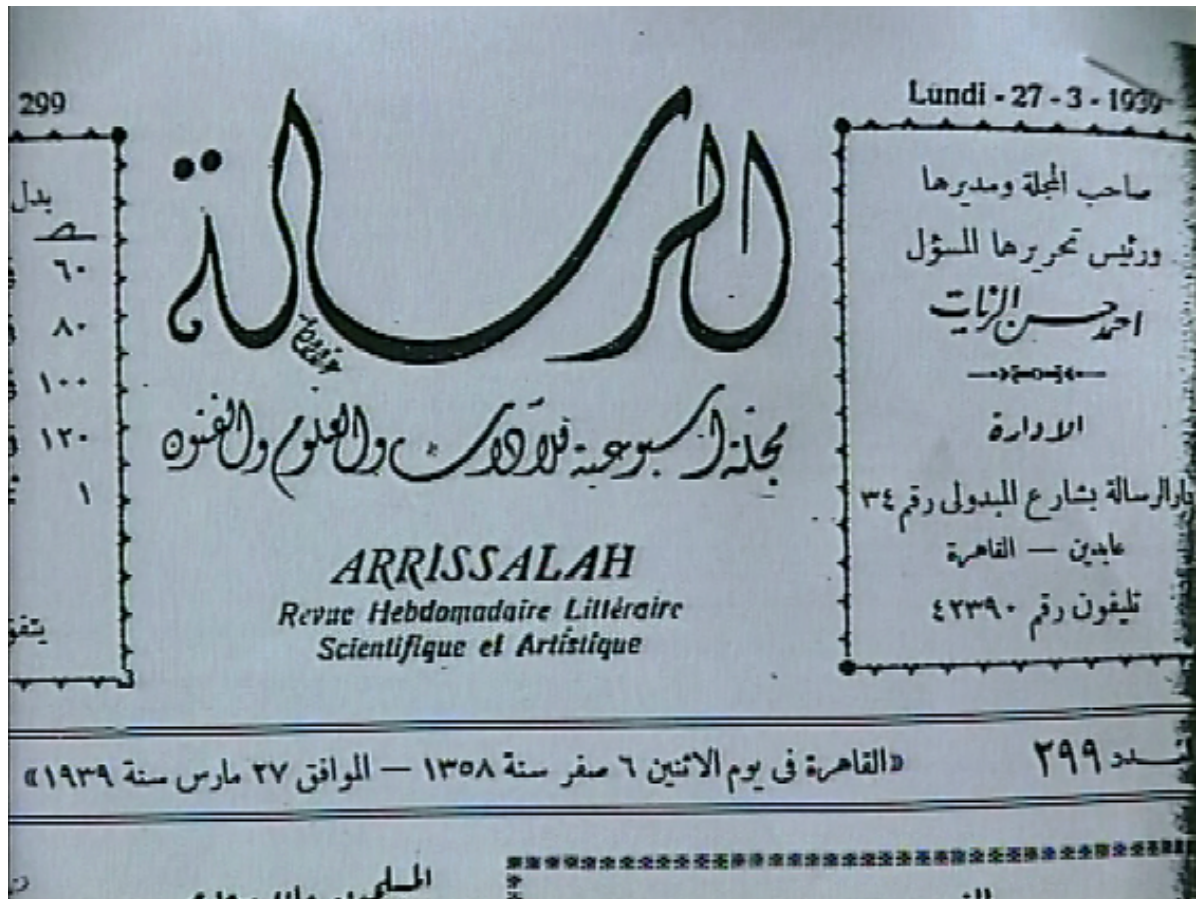 299
Lundi - 27 - 3 - 1939
صاحب المجلة ومديرها
ورئيس تحريرها المسؤل
احمد حسن الزيات
الادارة
دار الرسالة بشارع المبدولى رقم ٣٤
عابدين — القاهرة
تليفون رقم ٤٢٣٩٠
الرسالة
مجلة أسبوعية للآداب والعلوم والفنون
ARRISSALAH
Revue Hebdomadaire Littéraire
Scientifique et Artistique
بدل
٦٠
٨٠
١٠٠
١٢٠
١
العدد ٢٩٩
«القاهرة فى يوم الاثنين ٦ صفر سنة ١٣٥٨ — الموافق ٢٧ مارس سنة ١٩٣٩»